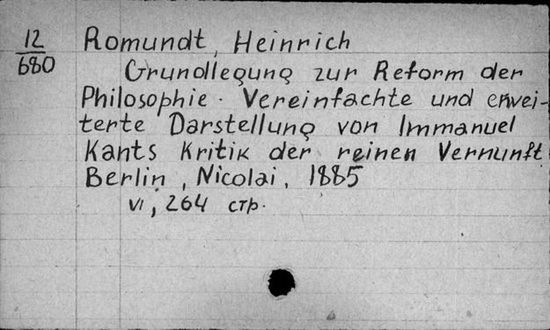 12
680
Romundt, Heinrich
Grundlegung zur Reform der
Philosophie. Vereinfachte und erwei-
terte Darstellung von Immanuel
Kants Kritik der reinen Vernunft
Berlin, Nicolai, 1885
VI, 264 стр.